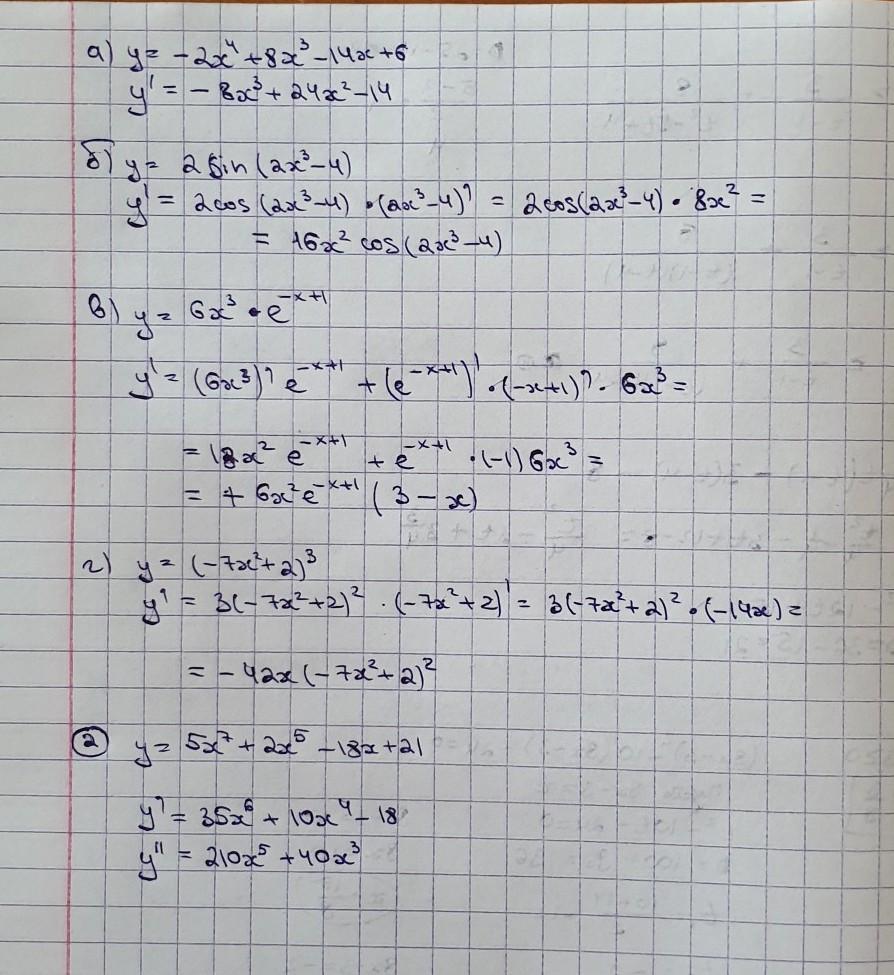 а) y = -2x⁴ + 8x³ - 14x + 6
y' = - 8x³ + 24x² - 14
б) y = 2 sin (2x³-4)
y' = 2cos (2x³-4) · (2x³-4)' = 2cos(2x³-4) · 8x² =
= 16x² cos(2x³-4)
в) y = 6x³ · e⁻ˣ⁺¹
y' = (6x³)' e⁻ˣ⁺¹ + (e⁻ˣ⁺¹)' · (-x+1)' · 6x³ =
= 18x² e⁻ˣ⁺¹ + e⁻ˣ⁺¹ · (-1) 6x³ =
= + 6x² e⁻ˣ⁺¹ (3 - x)
г) y = (-7x²+2)³
y' = 3(-7x²+2)² · (-7x²+2)' = 3(-7x²+2)² · (-14x) =
= - 42x (-7x²+2)²
② y = 5x⁷ + 2x⁵ - 18x + 21
y' = 35x⁶ + 10x⁴ - 18
y'' = 210x⁵ + 40x³